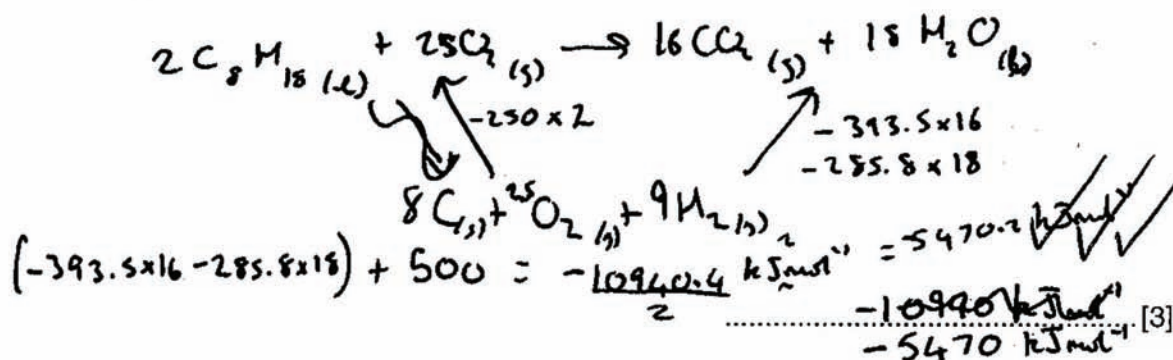 2C₈H₁₈(l) + 25O₂(g) → 16CO₂(g) + 18H₂O(l)
-250 × 2
-393.5 × 16
-285.8 × 18
8C(s) + 25O₂(g) + 9H₂(g)
(-393.5×16 -285.8×18) + 500 = -10940.4/2 kJmol⁻¹ = -5470.2 kJmol⁻¹
-10940 kJmol⁻¹
-5470 kJmol⁻¹ [3]